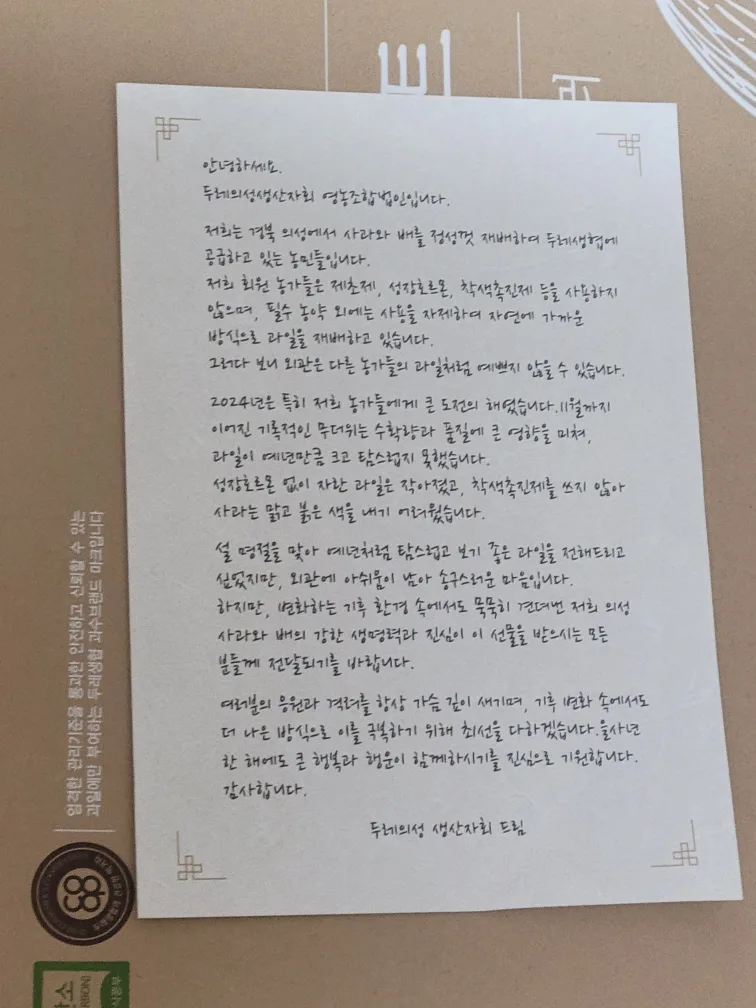 안녕하세요.
두레의성생산자회 영농조합법인입니다.
저희는 경북 의성에서 사과와 배를 정성껏 재배하여 두레생협에
공급하고 있는 농민들입니다.
저희 회원 농가들은 제초제, 성장호르몬, 착색촉진제 등을 사용하지
않으며, 필수 농약 외에는 사용을 자제하여 자연에 가까운
방식으로 과일을 재배하고 있습니다.
그러다 보니 외관은 다른 농가들의 과일처럼 예쁘지 않을 수 있습니다.
2024년은 특히 저희 농가들에게 큰 도전의 해였습니다.11월까지
이어진 기록적인 무더위는 수확량과 품질에 큰 영향을 미쳐,
과일이 예년만큼 크고 탐스럽지 못했습니다.
성장호르몬 없이 자란 과일은 작아졌고, 착색촉진제를 쓰지 않아
사과는 맑고 붉은 색을 내기 어려웠습니다.
설 명절을 맞아 예년처럼 탐스럽고 보기 좋은 과일을 전해드리고
싶었지만, 외관에 아쉬움이 남아 송구스러운 마음입니다.
하지만, 변화하는 기후 환경 속에서도 묵묵히 견뎌낸 저희 의성
사과와 배의 강한 생명력과 진심이 이 선물을 받으시는 모든
분들께 전달되기를 바랍니다.
여러분의 응원과 격려를 항상 가슴 깊이 새기며, 기후 변화 속에서도
더 나은 방식으로 이를 극복하기 위해 최선을 다하겠습니다.을사년
한 해에도 큰 행복과 행운이 함께하시기를 진심으로 기원합니다.
감사합니다.
두레의성 생산자회 드림
엄격한 관리기준을 통과한 안전하고 신뢰할 수 있는
과일에만 부여하는 두레생협 과수브랜드 마크입니다